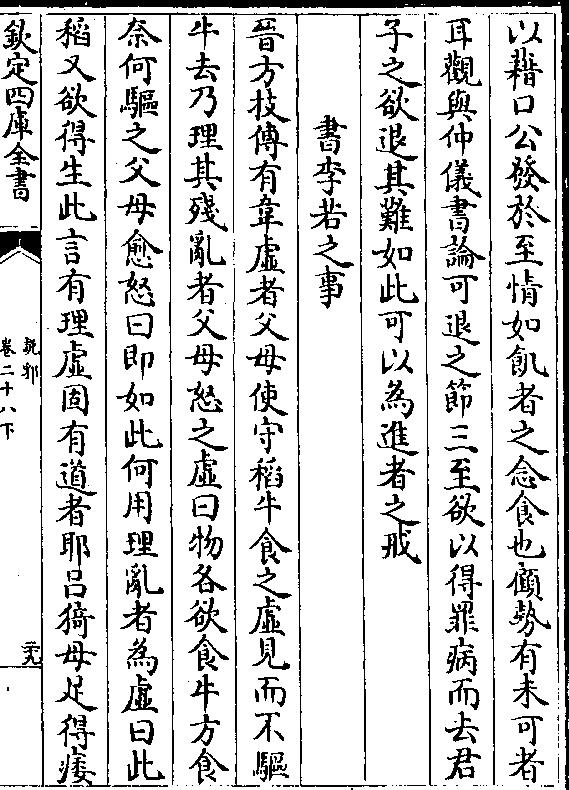 以藉口公發於至情如飢者之念食也顧勢有未可者
耳觀與仲儀書論可退之節三至欲以得罪病而去君
子之欲退其難如此可以為進者之戒
書李若之事
晉方技傳有韋虛者父母使守稻牛食之虛見而不驅
牛去乃理其殘亂者父母怒之虛曰物各欲食牛方食
奈何驅之父母愈怒曰即如此何用理亂者為虛曰此
稻又欲得生此言有理虛固有道者耶呂猗母足得痿
欽定四庫全書
說郛
卷二十八下
二十九